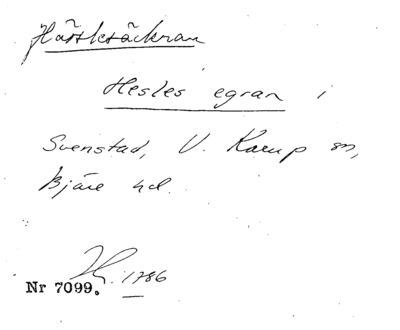 Hesles egran i
Svenstad, V. Karup sn,
Bjäre hd.
1786
Nr 7099.